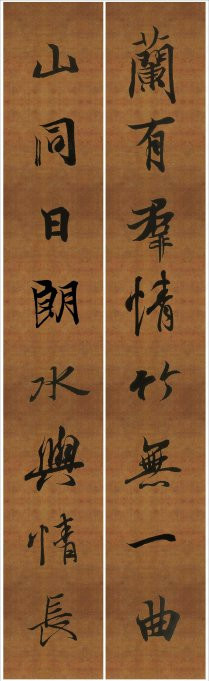 蘭有羣情竹無一曲
山同日朗水與情長